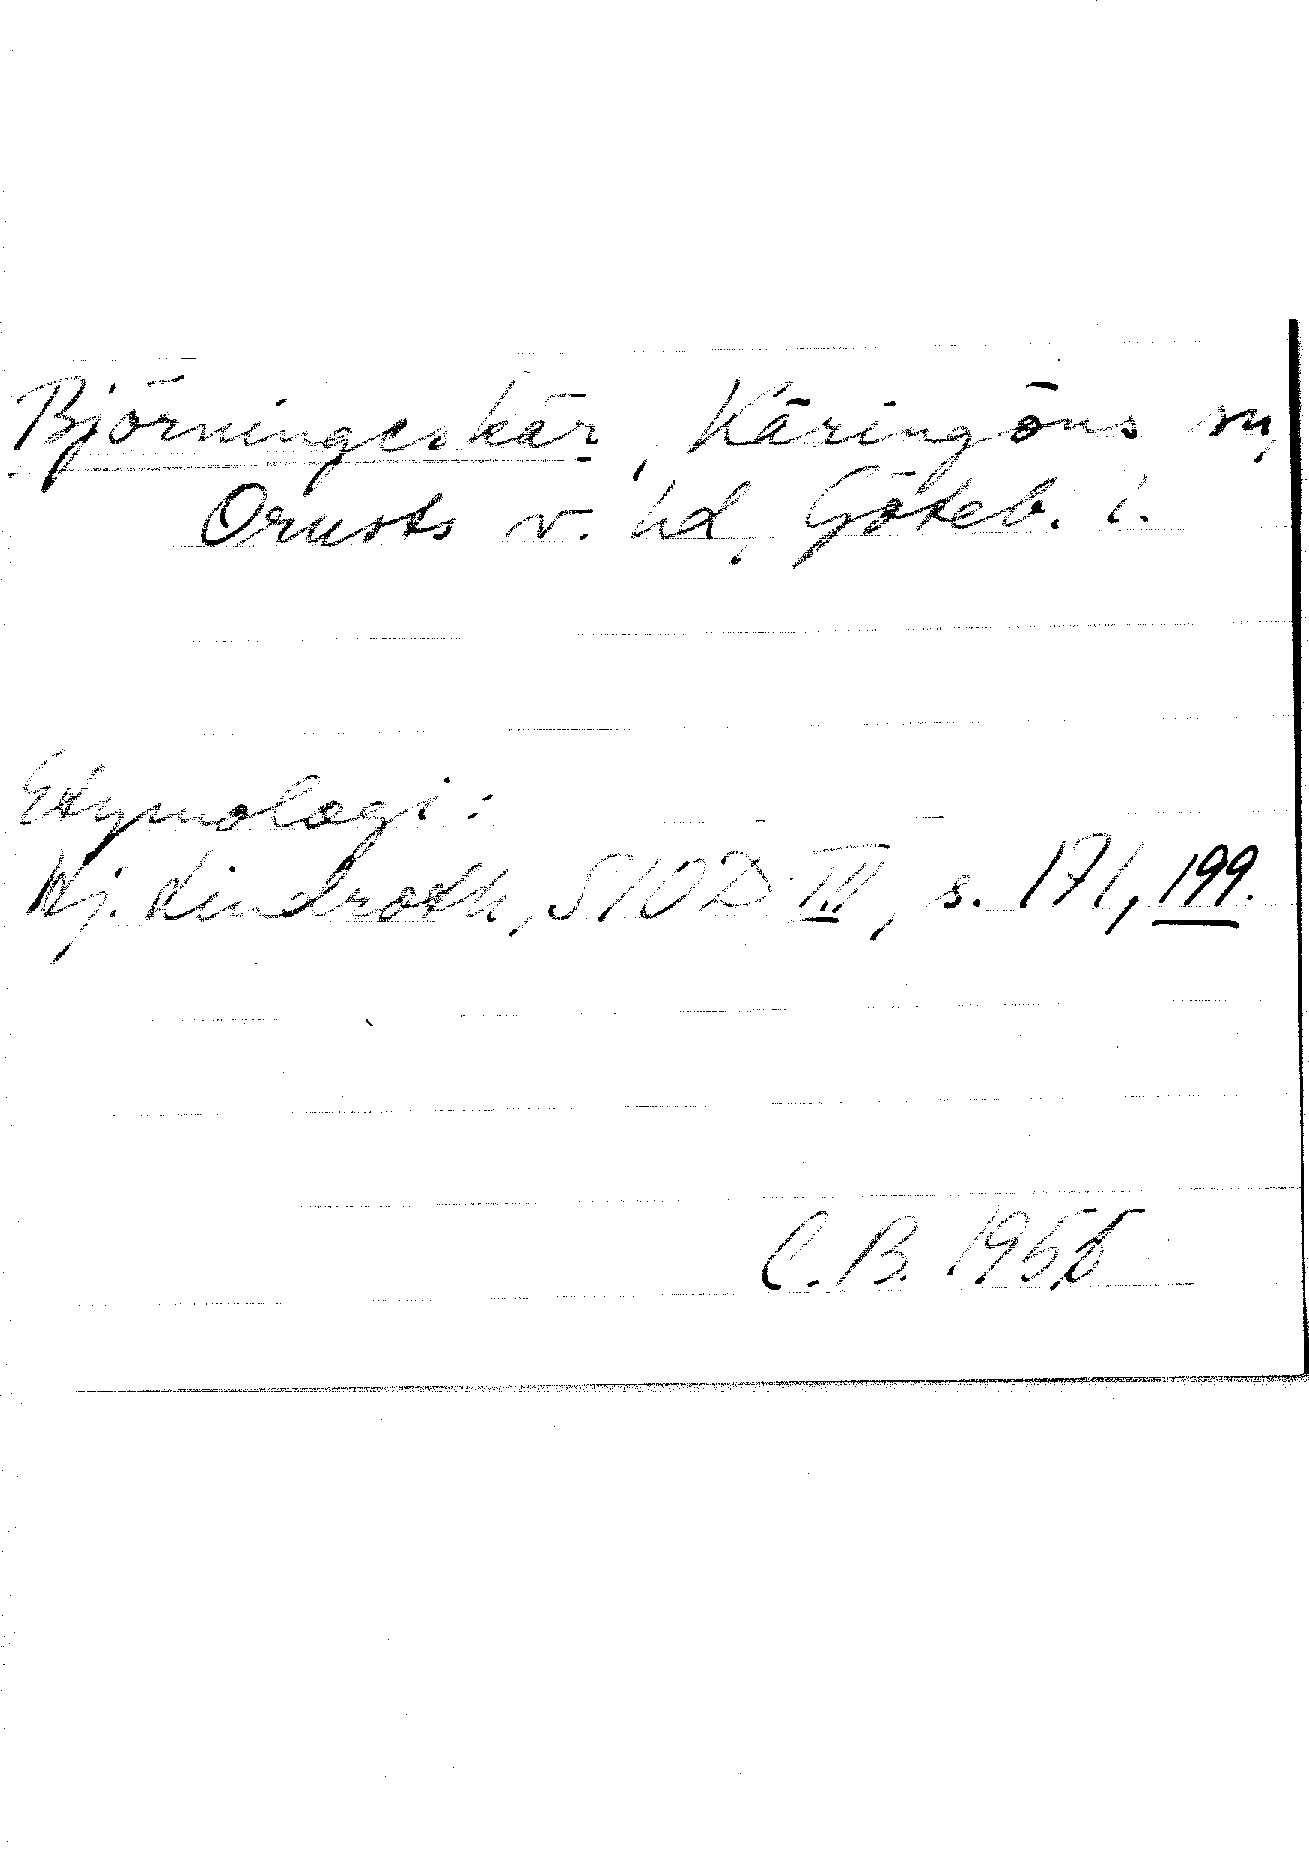 Björningeskär, Käringöns sn,
Orusts v. hd, Göteb. l.
Etymologi:
Hj. Lindroth, SIOD III, s. 171, 199.
C. B. 1956